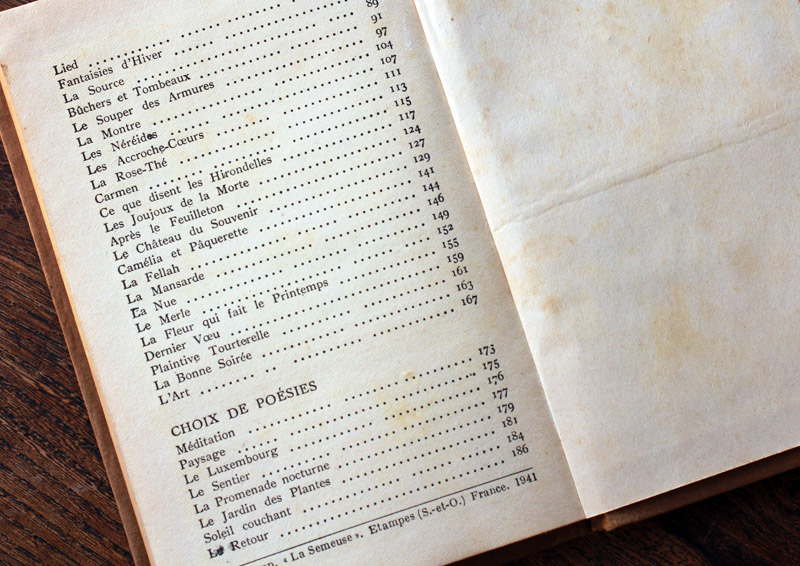 Lied
Fantaisies d'Hiver
La Source 89
Bûchers et Tombeaux 91
Le Souper des Armures 97
La Montre 104
Les Néréides 107
Les Accroche-Cœurs 111
La Rose-Thé 113
Carmen 115
Ce que disent les Hirondelles 117
Les Joujoux de la Morte 124
Après le Feuilleton 127
Le Château du Souvenir 129
Camélia et Pâquerette 141
La Fellah 144
La Mansarde 146
La Nue 149
Le Merle 152
La Fleur qui fait le Printemps 155
Dernier Vœu 159
Plaintive Tourterelle 161
La Bonne Soirée 163
L'Art 167
CHOIX DE POÉSIES
Méditation 173
Paysage 175
Le Luxembourg 176
Le Sentier 177
La Promenade nocturne 179
Le Jardin des Plantes 181
Soleil couchant 184
Le Retour 186
« La Semeuse ». Etampes (S.-et-O.) France. 1941